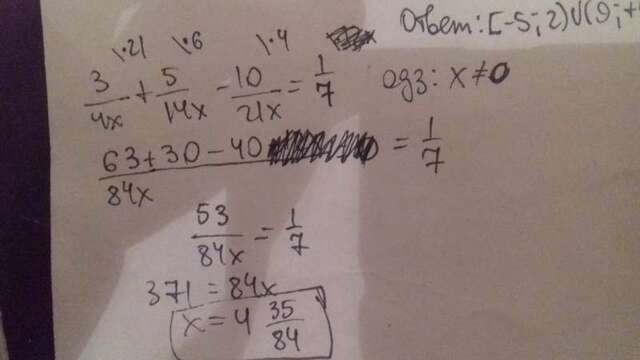 Ответ: [-5; 2)U(9; +
\·21 \·6 \·4
3/4x + 5/14x - 10/21x = 1/7 ОДЗ: x ≠ 0
63+30-40/84x = 1/7
53/84x = 1/7
371 = 84x
x = 4 35/84